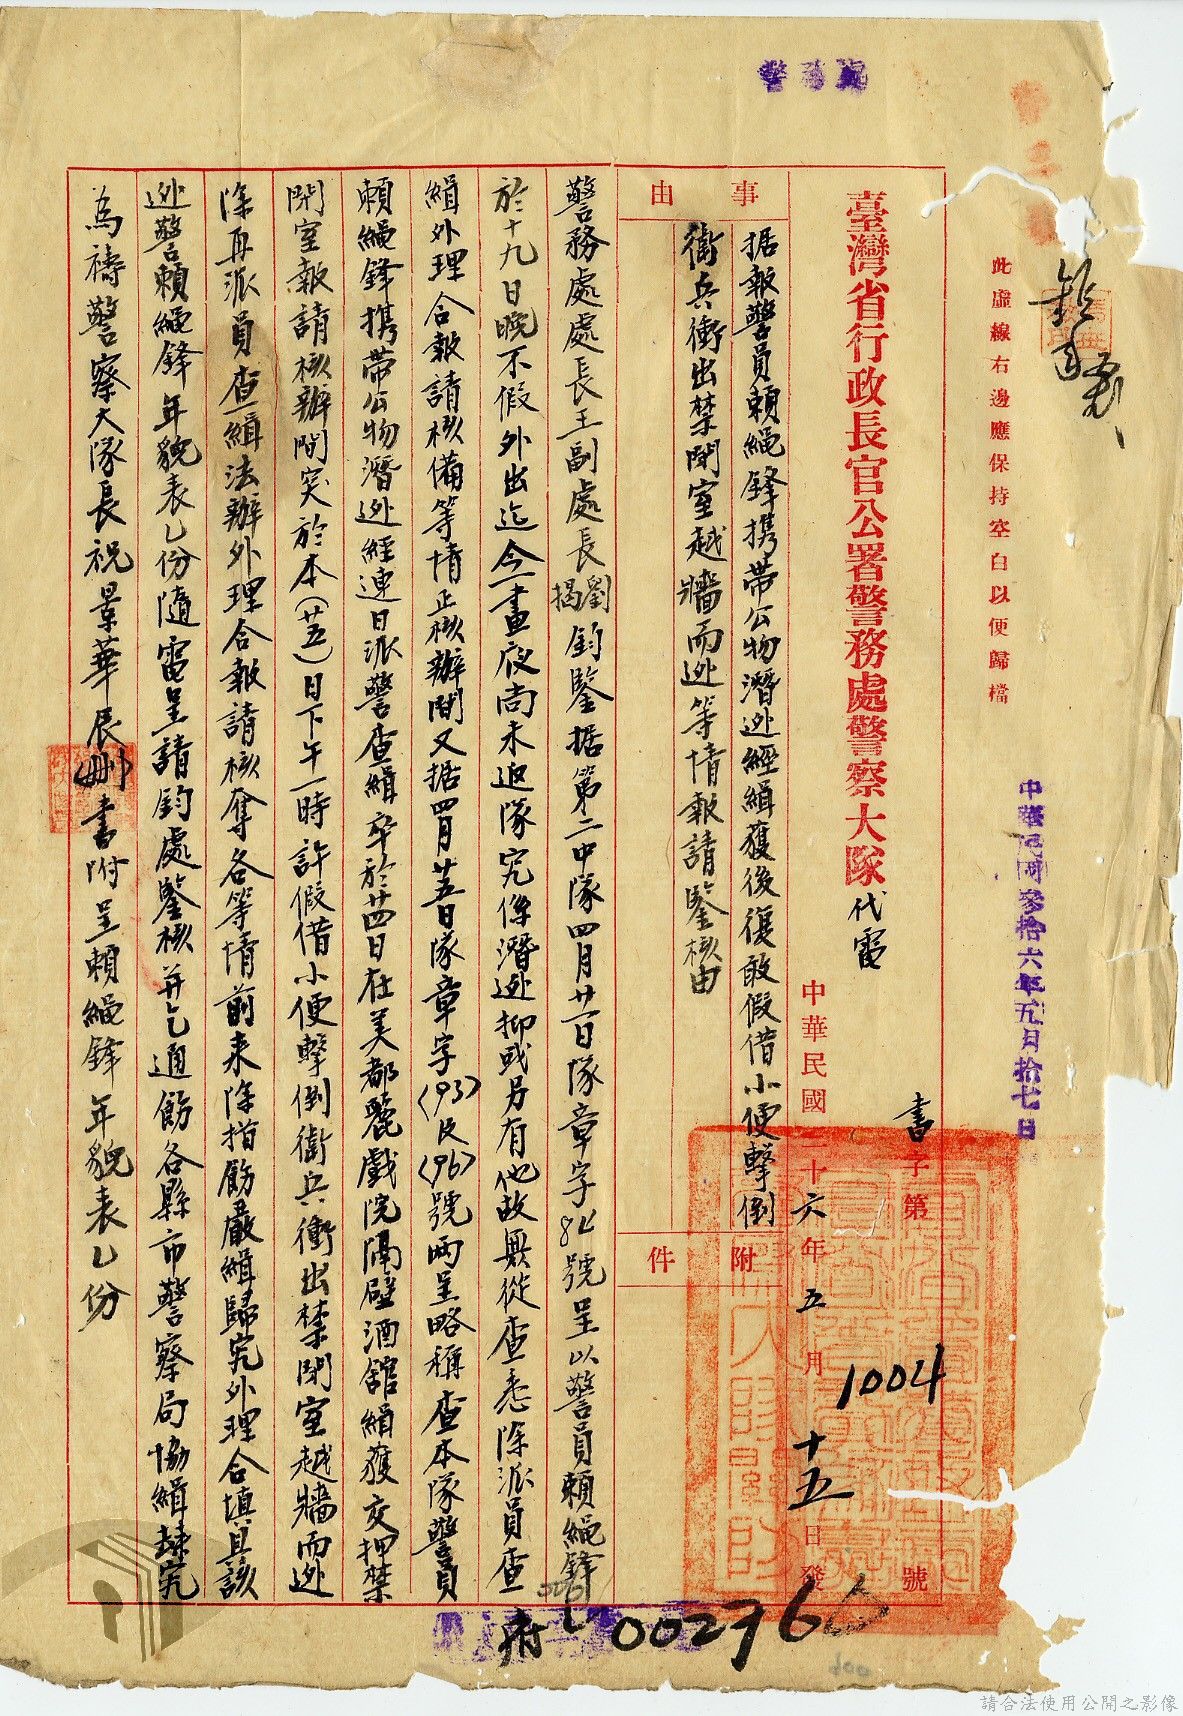 此虛線右邊應保持空白以便歸檔
中華民國參拾六年五月拾七日
臺灣省行政長官公署警務處警察大隊代電
書字第1004號
中華民國三十六年五月十五日發
事由
据報警員賴繩鋒携帶公物潛逃經緝獲後復敢假借小便擊倒
衛兵衝出禁閉室越牆而逃等情報請鑒核由
附件
警務處處長王副處長劉揭鈞鑒据第二中隊四月廿一日隊章字84號呈以警員賴繩鋒
於十九日晚不假外出迄今一晝夜尚未返隊究係潛逃抑或另有他故無從查悉除派員查
緝外理合報請核備等情正核辦間又据四月廿五日隊章字(93)及(96)號兩呈略稱查本隊警員
賴繩鋒携帶公物潛逃經連日派警查緝卒於廿四日在美都麗戲院隔壁酒舘緝獲交押禁
閉室報請核辦間突於本(廿五)日下午一時許假借小便擊倒衛兵衝出禁閉室越牆而逃
除再派員查緝法辦外理合報請核奪各等情前来除指飭嚴緝歸究外理合填具該
逃警賴繩鋒年貌表乙份隨電呈請鈞處鑒核并乞通飭各縣市警察局協緝歸究
為禱警察大隊長祝景華辰(刪)書附呈賴繩鋒年貌表乙份
府
00276
請合法使用公開之影像